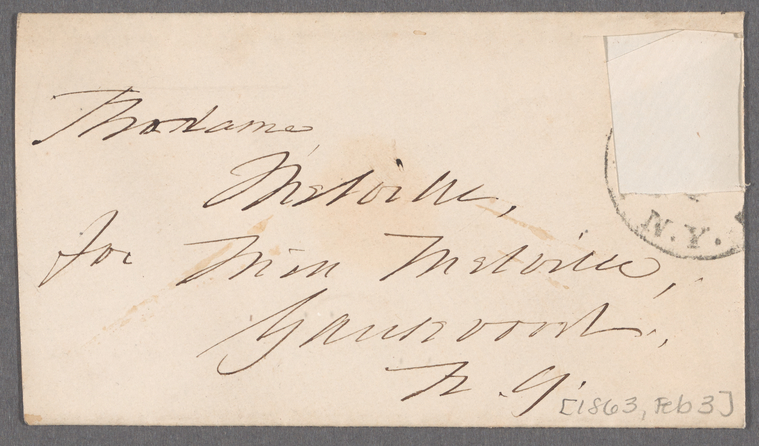 Madame
Melville,
for Miss Melville,
Gansevoort,
N.Y.
N.Y.
[1863, Feb 3]